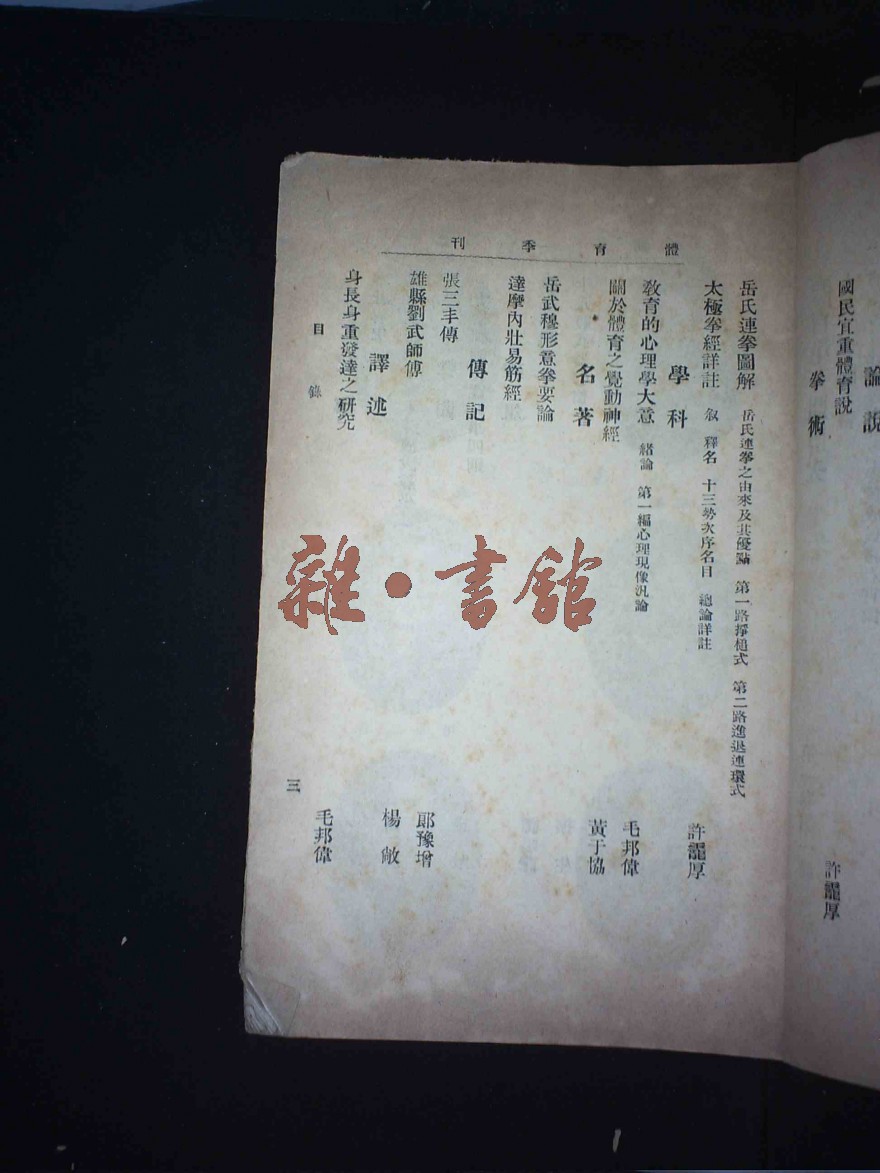 論說
國民宜重體育說 許龗厚
拳術
體育季刊
岳氏連拳圖解 岳氏連拳之由來及其優點 第一路撐槌式 第二路進退連環式
太極拳經詳註 敘 釋名 十三勢次序名目 總論詳註 許龗厚
學科
教育的心理學大意 緒論 第一編心理現像汎論 毛邦偉
關於體育之覺動神經 黃于協
名著
岳武穆形意拳要論
達摩內壯易筋經
傳記
張三丰傳 郎豫增
雄縣劉武師傳 楊敞
譯述
身長身重發達之研究 毛邦偉
目錄
三
雜·書館